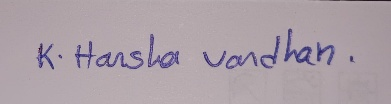 K. Harsha vardhan.